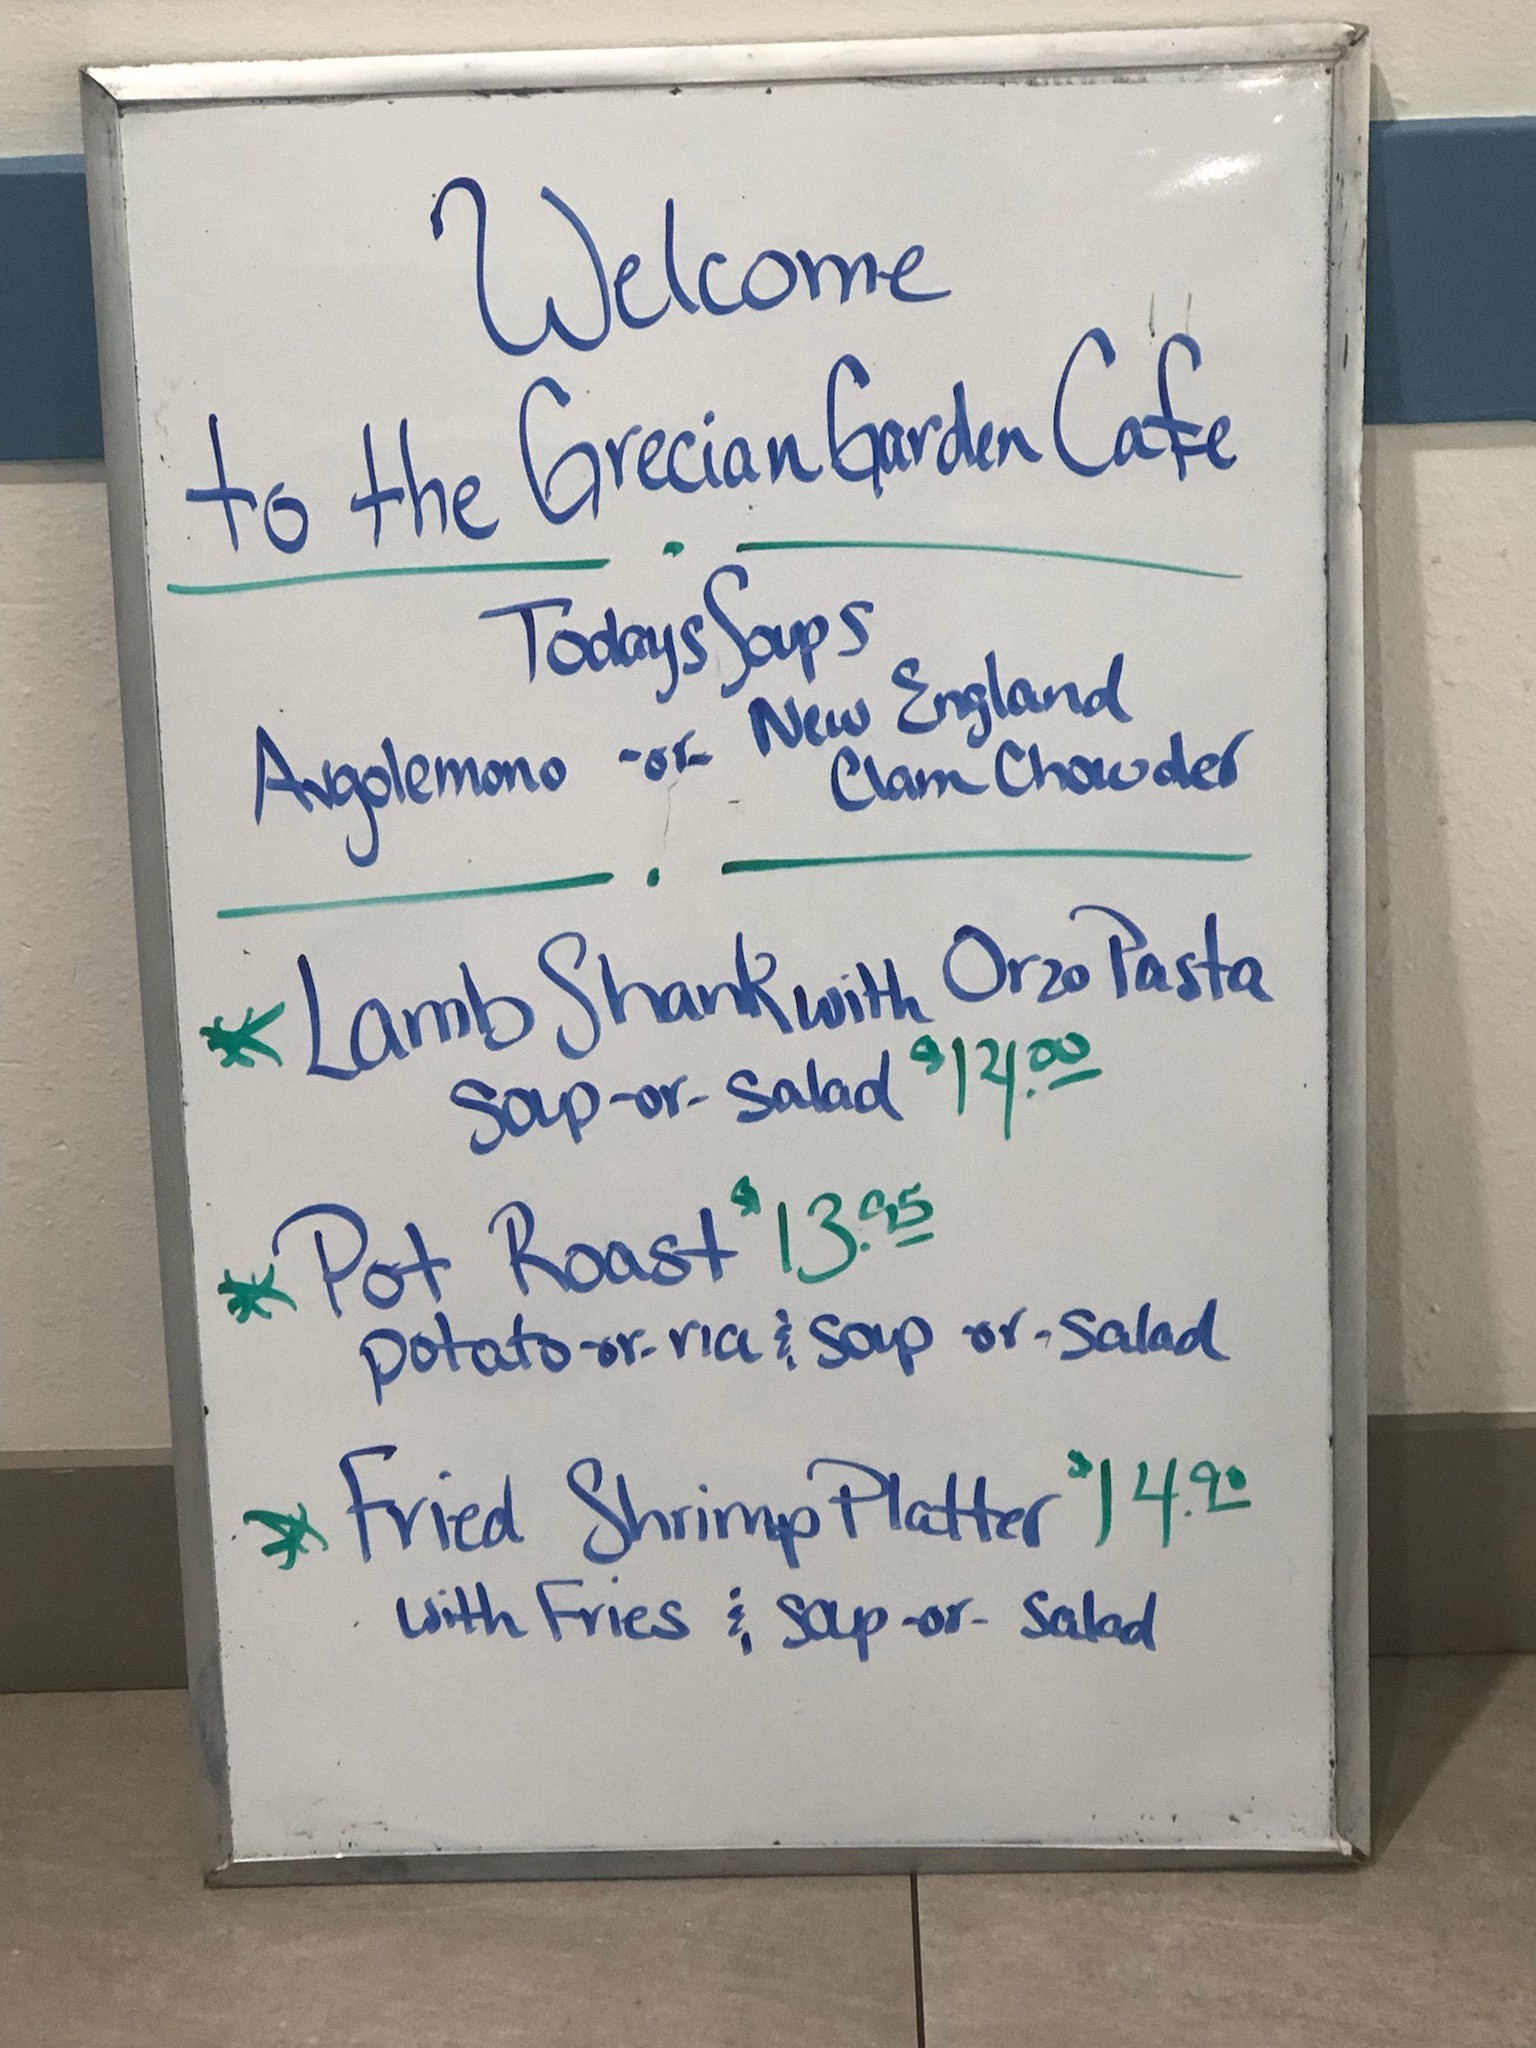 Welcome
to the Grecian Garden Cafe
Todays Soups
Avgolemono -or- New England
Clam Chowder
* Lamb Shank with Orzo Pasta
soup -or- salad $14.00
* Pot Roast $13.95
potato -or- rice & soup -or- salad
* Fried Shrimp Platter $14.90
with Fries & soup -or- salad